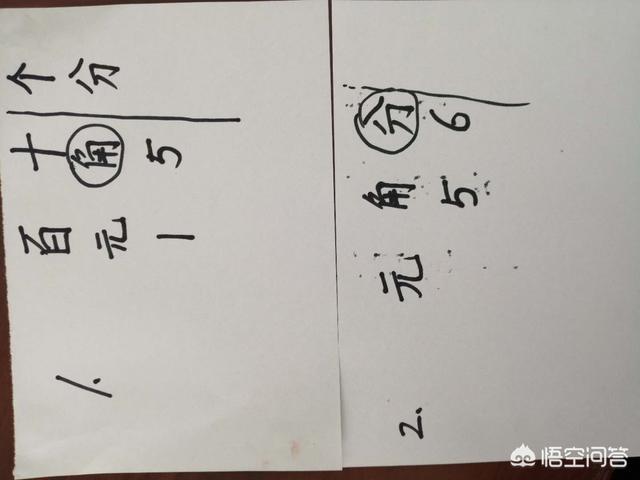 百 十 个
1. 元 角 分
1 5
2. 元 角 分
5 6
悟空问答